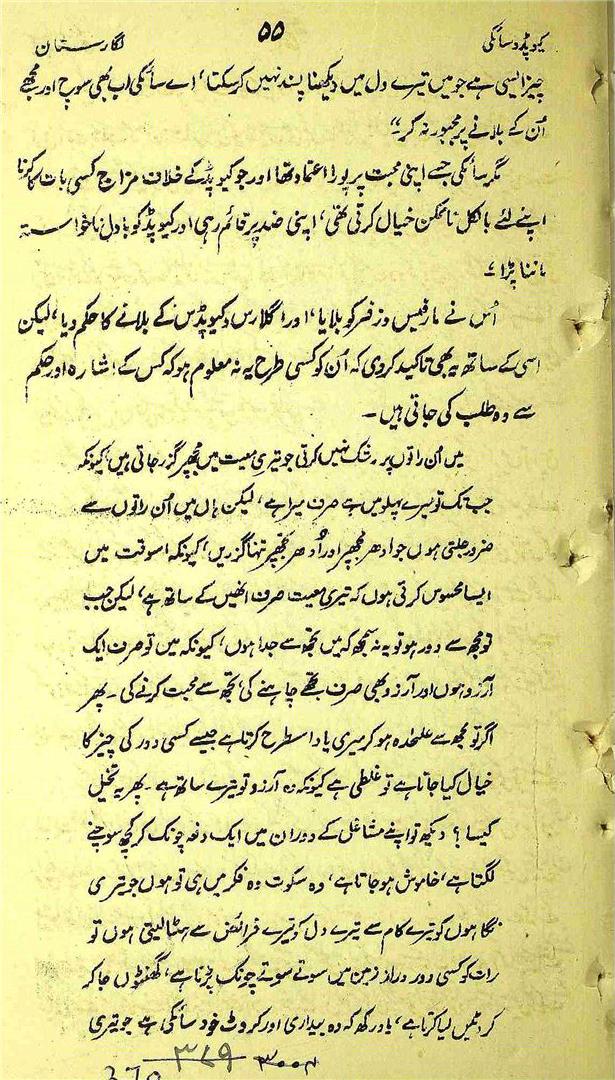 کیوپڈ و سائکی ۵۵ نگارستان
چیز ایسی ہے جو میں تیرے دل میں دیکھنا پسند نہیں کر سکتا، اے سائکی اب بھی سوچ اور مجھے
اُن کے بلانے پر مجبور نہ کر“
مگر سائکی جسے اپنی محبت پر پورا اعتماد تھا اور جو کیوپڈ کے خلاف مزاج کسی بات کا کرنا
اپنے لئے بالکل ناممکن خیال کرتی تھی، اپنی ضد پر قائم رہی اور کیوپڈ کو بادل ناخواستہ
ماننا پڑا۔
اُس نے مارفیس و زفر کو بلایا، اور اگلارس و کیوپڈس کے بلانے کا حکم دیا، لیکن
اسی کے ساتھ یہ بھی تاکید کردی کہ اُن کو کسی طرح یہ نہ معلوم ہو کہ کس کے اشارہ اور حکم
سے وہ طلب کی جاتی ہیں۔
میں اُن راتوں پر رشک نہیں کرتی جو تیری معیت میں مجھپر گزر جاتی ہیں، کیونکہ
جب تک تو میرے پہلو میں ہے صرف میرا ہے، لیکن ہاں میں اُن راتوں سے
ضرور جلتی ہوں جو ادھر مجھپر اور اُدھر تجھپر تنہا گزریں، کیونکہ اسوقت میں
ایسا محسوس کرتی ہوں کہ تیری معیت صرف انھیں کے ساتھ ہے، لیکن جب
تو مجھ سے دور ہو تو یہ نہ سمجھ کہ میں تجھ سے جدا ہوں، کیونکہ میں تو صرف ایک
آرزو ہوں اور آرزو بھی صرف تجھے چاہنے کی، تجھ سے محبت کرنے کی۔ پھر
اگر تو مجھ سے علٰحدہ ہو کر میری یاد اسطرح کرتا ہے جیسے کسی دور کی چیز کا
خیال کیا جاتا ہے تو غلطی ہے کیونکہ وہ آرزو تو تیرے ساتھ ہے۔ پھر یہ تخیل
کیسا؟ دیکھ تو اپنے مشاغل کے دوران میں ایک دفعہ چونک کر کچھ سوچنے
لگتا ہے، خاموش ہو جاتا ہے، وہ سکوت وہ فکر میں ہی تو ہوں جو تیری
نگاہوں کو تیرے کام سے تیرے دل کو تیرے فرائض سے ہٹا لیتی ہوں تو
رات کو کسی دور دراز زمین میں سوتے سوتے چونک پڑتا ہے، گھنٹوں جاگ کر
کروٹیں لیا کرتا ہے، یاد رکھ کہ وہ بیداری اور کروٹ خود سائکی ہے جو تیری
۳۶۹ ۳۰۰۴